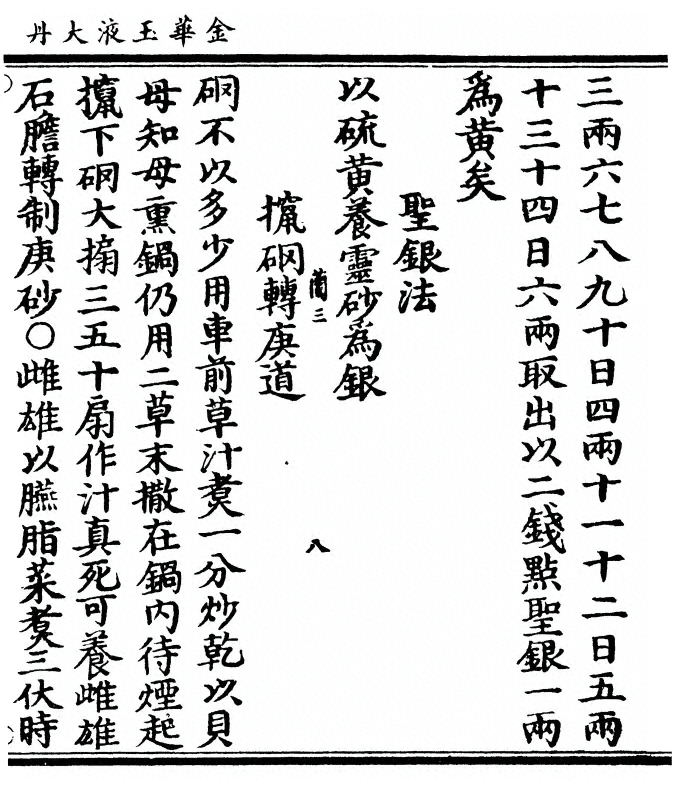 金華玉液大丹
三兩六七八九十日四兩十一十二日五兩
十三十四日六兩取出以二錢點聖銀一兩
爲黃矣
聖銀法
以硫黃養靈砂爲銀
蘭三
八
攛硇轉庚道
硇不以多少用車前草汁煑一分炒乾以貝
母知母熏鍋仍用二草末撒在鍋内待煙起
攛下硇大搧三五十扇作汁真死可養雌雄
石膽轉制庚砂〇雌雄以臙脂菜煑三伏時